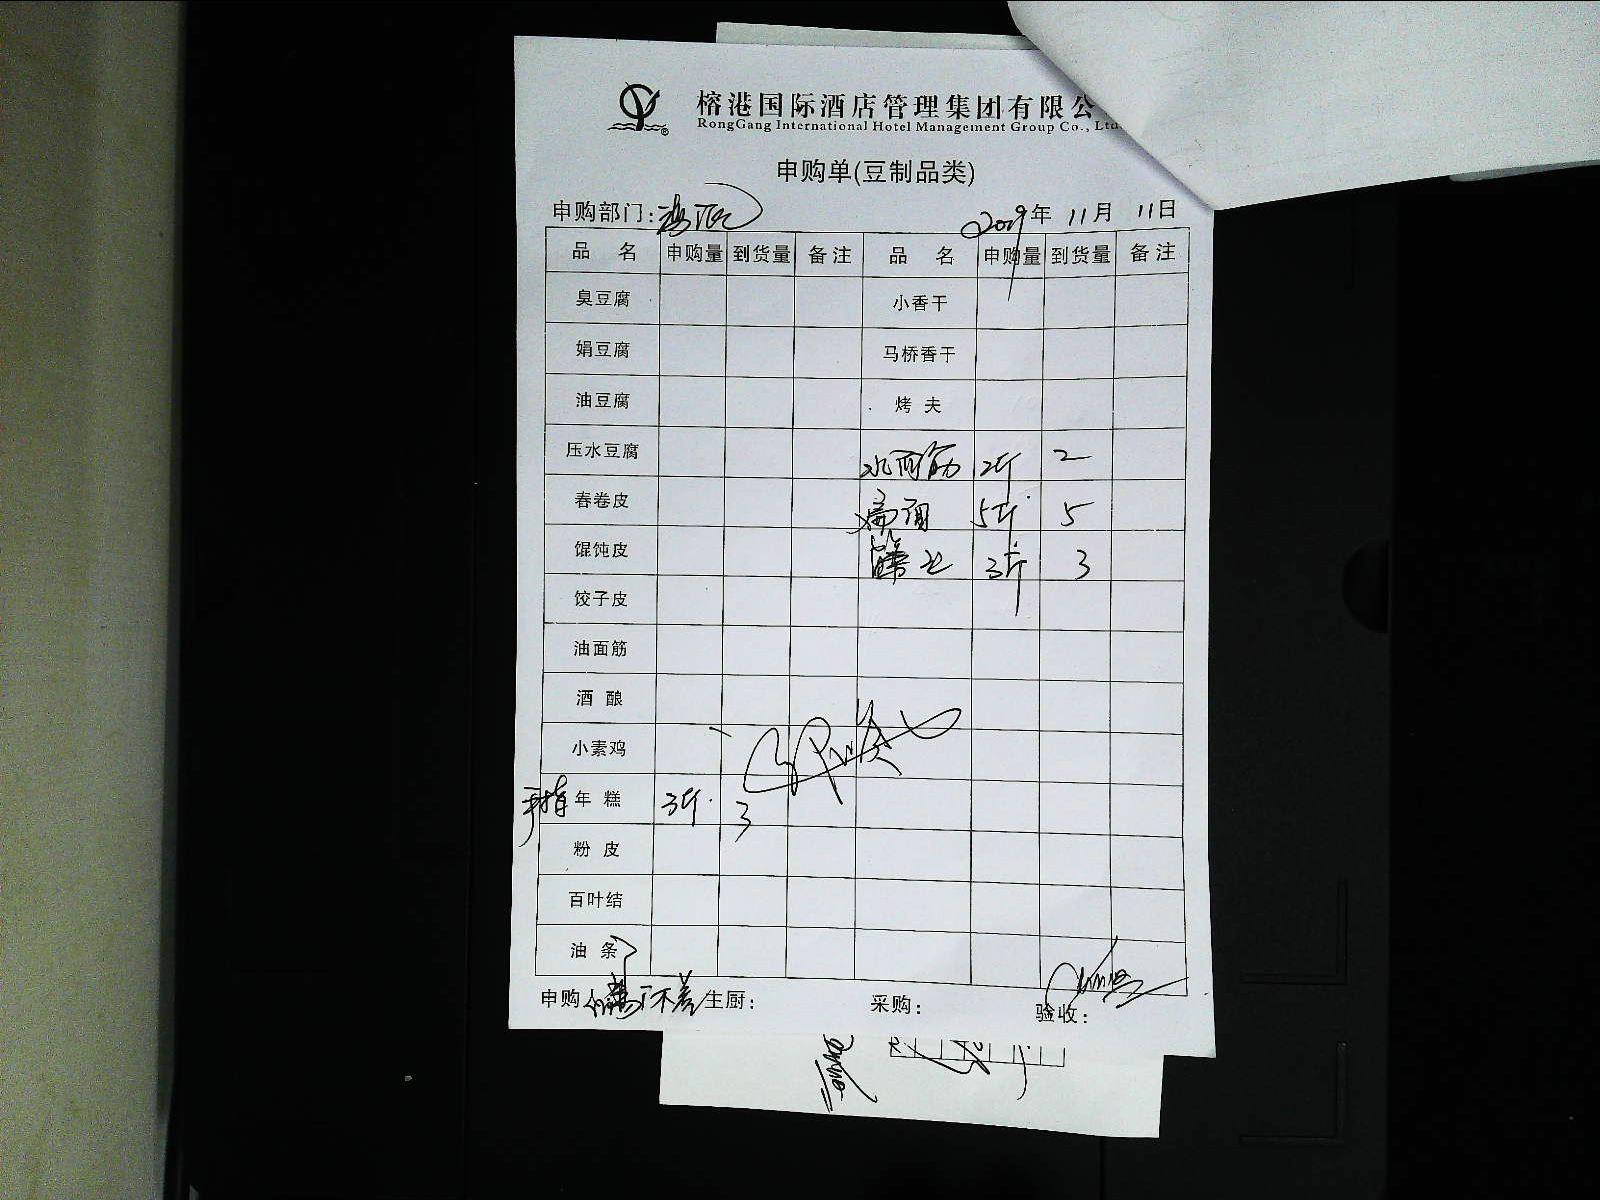 榕港国际酒店管理集团有限公
RongGang International Hotel Management Group Co., Ltd
申购单(豆制品类)
申购部门: 2019年 11月 11日
品 名 申购量 到货量 备注 品 名 申购量 到货量 备注
臭豆腐 小香干
娟豆腐 马桥香干
油豆腐 烤 夫
压水豆腐 水面筋 2斤 2
春卷皮 5斤 5
馄饨皮 3斤 3
饺子皮
油面筋
酒 酿
小素鸡
手指年 糕 3斤 3
粉 皮
百叶结
油 条
申购人 生厨: 采购: 验收: